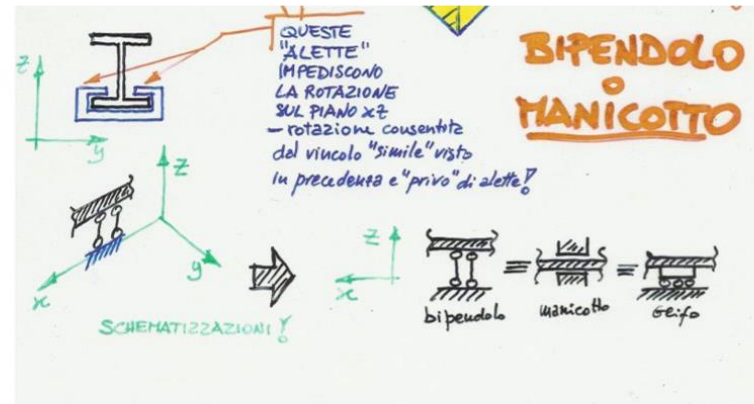 QUESTE
"ALETTE"
IMPEDISCONO
LA ROTAZIONE
SUL PIANO xz
- rotazione consentita
dal vincolo "simile" visto
in precedenza e "privo" di alette!
BIPENDOLO
o
MANICOTTO
z
y
z
x
y
SCHEMATIZZAZIONI!
z
x
≡
≡
bipendolo
manicotto
Glifo